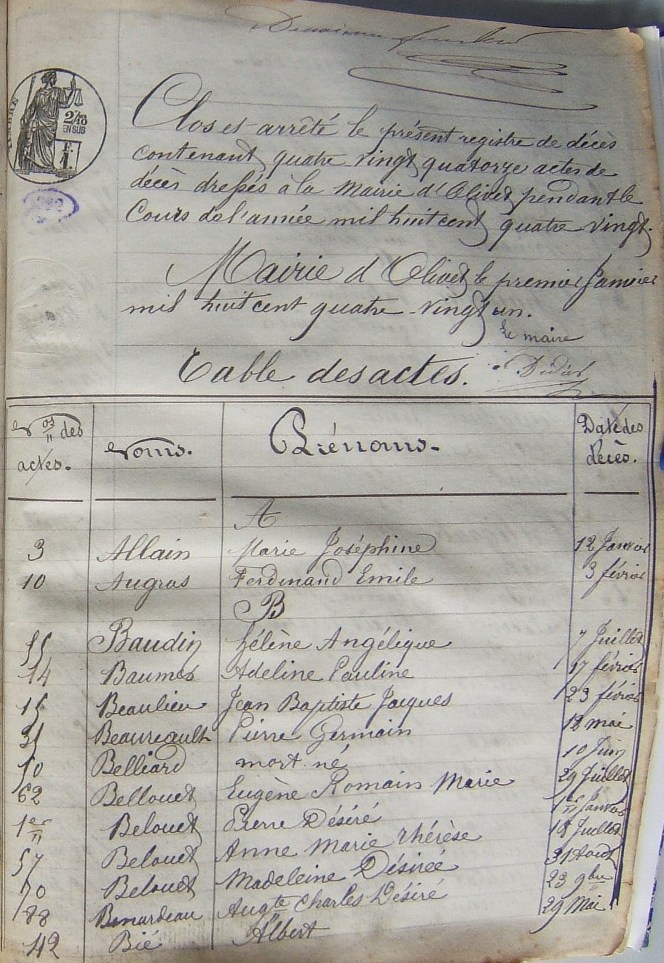 2/10
EN SUS
Clos et arrêté le présent registre de décès
contenant quatre vingt quatorze actes de
décès dressés à la Mairie d'Olivet pendant le
Cours de l'année mil huit cent quatre vingt.
Mairie d'Olivet le premier Janvier
mil huit cent quatre vingt un.
Le maire
Table des actes.
Nos des actes. Noms. Prénoms. Date des décès.
A
3 Allain Marie Joséphine 12 Janvier
10 Augras Ferdinand Emile 3 février
B
55 Baudin Hélène Angélique 7 Juillet
14 Baumes Adeline Pauline 17 février
15 Beaulieu Jean Baptiste Jacques 23 février
31 Beaureault Pierre Germain 18 mai
50 Belliard mort né 10 Juin
62 Bellouet Eugène Romain Marie 29 Juillet
1er Belouet Pierre Désiré 1er Janvier
57 Belouet Anne Marie Thérèse 18 Juillet
70 Belouet Madeleine Désirée 31 Août
88 Benardeau Augte Charles Désiré 23 9bre
42 Bié Albert 29 Mai